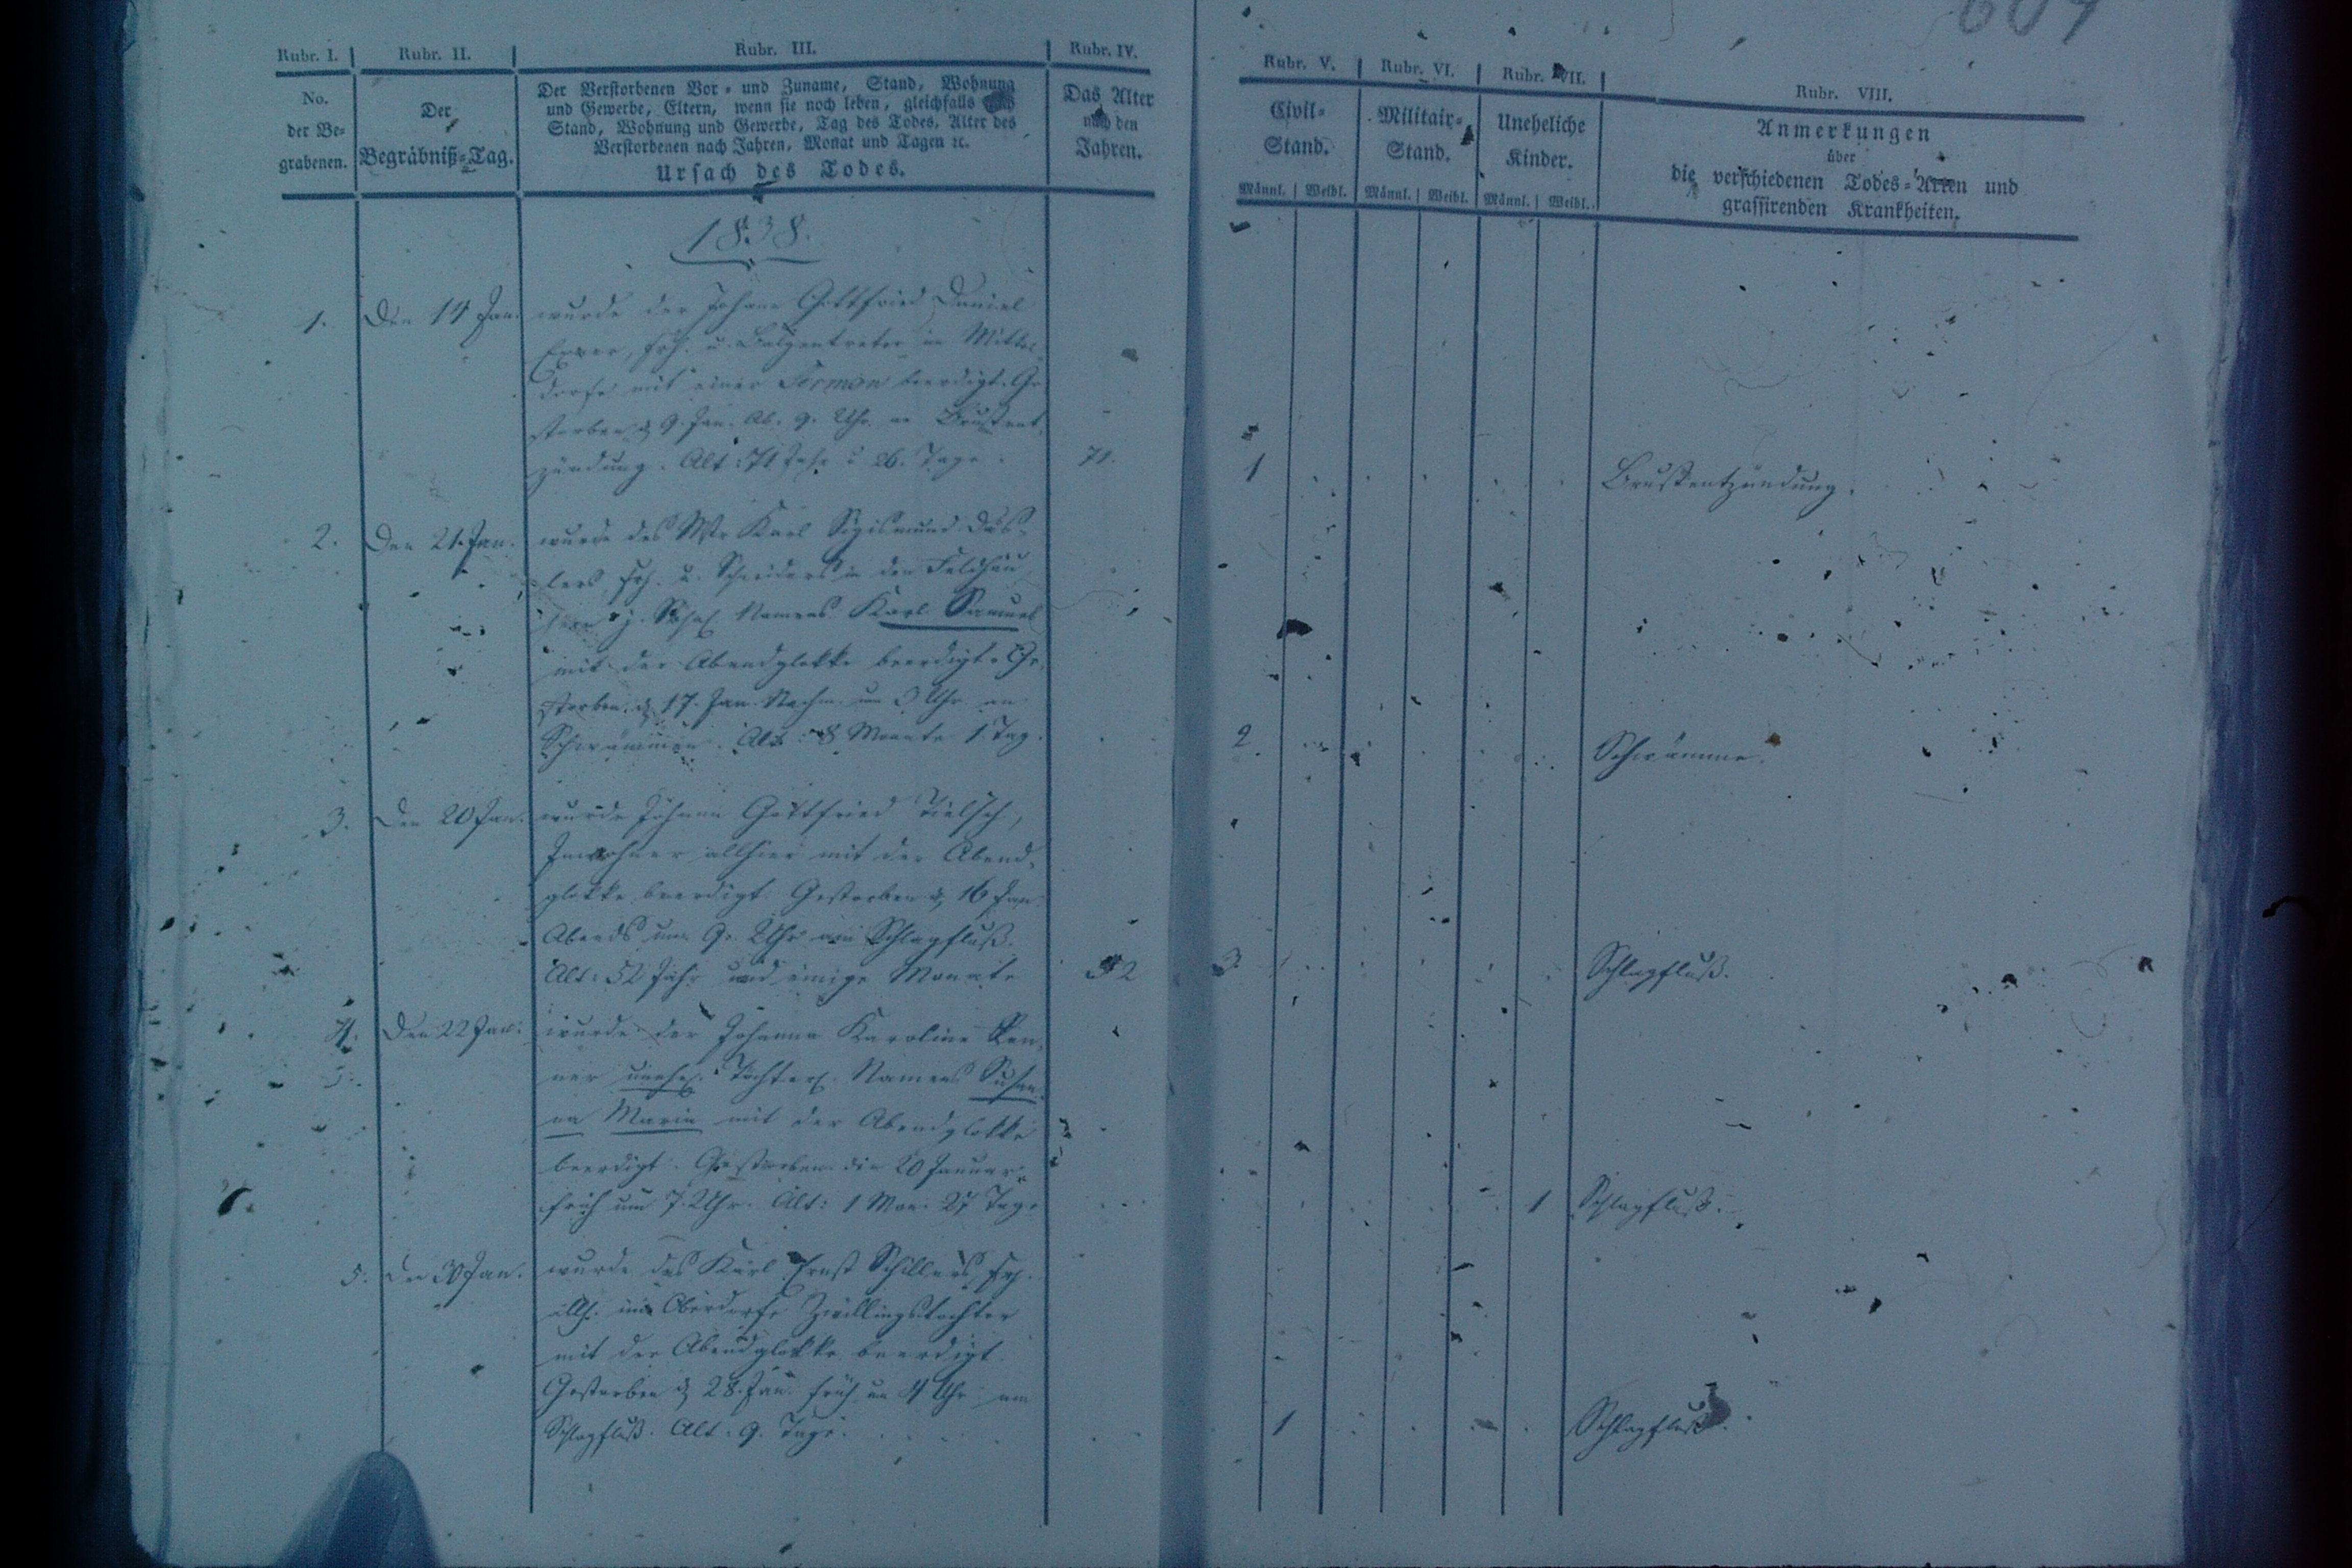 Rubr. I. Rubr. II. Rubr. III. Rubr. IV.
No.
der Be=
grabenen.
Der
Begräbniß=Tag.
Der Verstorbenen Vor = und Zuname, Stand, Wohnung
und Gewerbe, Eltern, wenn sie noch leben, gleichfalls
Stand, Wohnung und Gewerbe, Tag des Todes, Alter des
Verstorbenen nach Jahren, Monat und Tagen ꝛc.
Ursach des Todes.
Das Alter
nach den
Jahren.
1838.
1. Den 14 Jan. wurde der Johann Gottfried Daniel
u. Balgentreter in Mittel
dorfe mit einer Sermon beerdigt. Ge
storben d. 9. Jan. Ab. 9. Uhr an Brustent
zündung. Alt: 71 Jahr u 26. Tage. 71.
2. Den 21. Jan. wurde des Mstr Karl Sigismund
u. Schneiders in den Feldhäu
Namens Karl Samuel
mit der Abendglokke beerdigt. Ge
storben d. 17. Jan. Nachm. um 3 Uhr an
Schwämmen. Alt: 8 Monate 1. Tag.
3. Den 20 Jan. wurde Johann Gottfried Tielsch,
Inwohner allhier mit der Abend
glokke beerdigt. Gestorben d. 16 Jan.
Abends um 9. Uhr am Schlagfluß.
Alt: 52 Jahr und einige Monate 52
4. Den 22 Jan. wurde der Johanna Karoline Ren
ner unehel. Töchterl. Namens Susan
na Maria mit der Abendglokke
beerdigt. Gestorben den 20 Januar
früh um 7. Uhr. Alt: 1 Mon. 27 Tage
5. Den 30 Jan. wurde des Karl Ernst Schillers,
im Oberdorfe Zwillingstochter
mit der Abendglokke beerdigt.
Gestorben d. 28. Jan. früh um 4 Uhr am
Schlagfluß. Alt. 9. Tage.
Rubr. V. Rubr. VI. Rubr. VII. Rubr. VIII.
Civil=
Stand.
Militair=
Stand.
Uneheliche
Kinder.
Anmerkungen
über
die verschiedenen Todes=Arten und
grassirenden Krankheiten.
Männl. Weibl. Männl. Weibl. Männl. Weibl.
1 Brustentzündung.
2. Schwämme.
3. Schlagfluß.
1 Schlagfluß.
1 Schlagfluß.